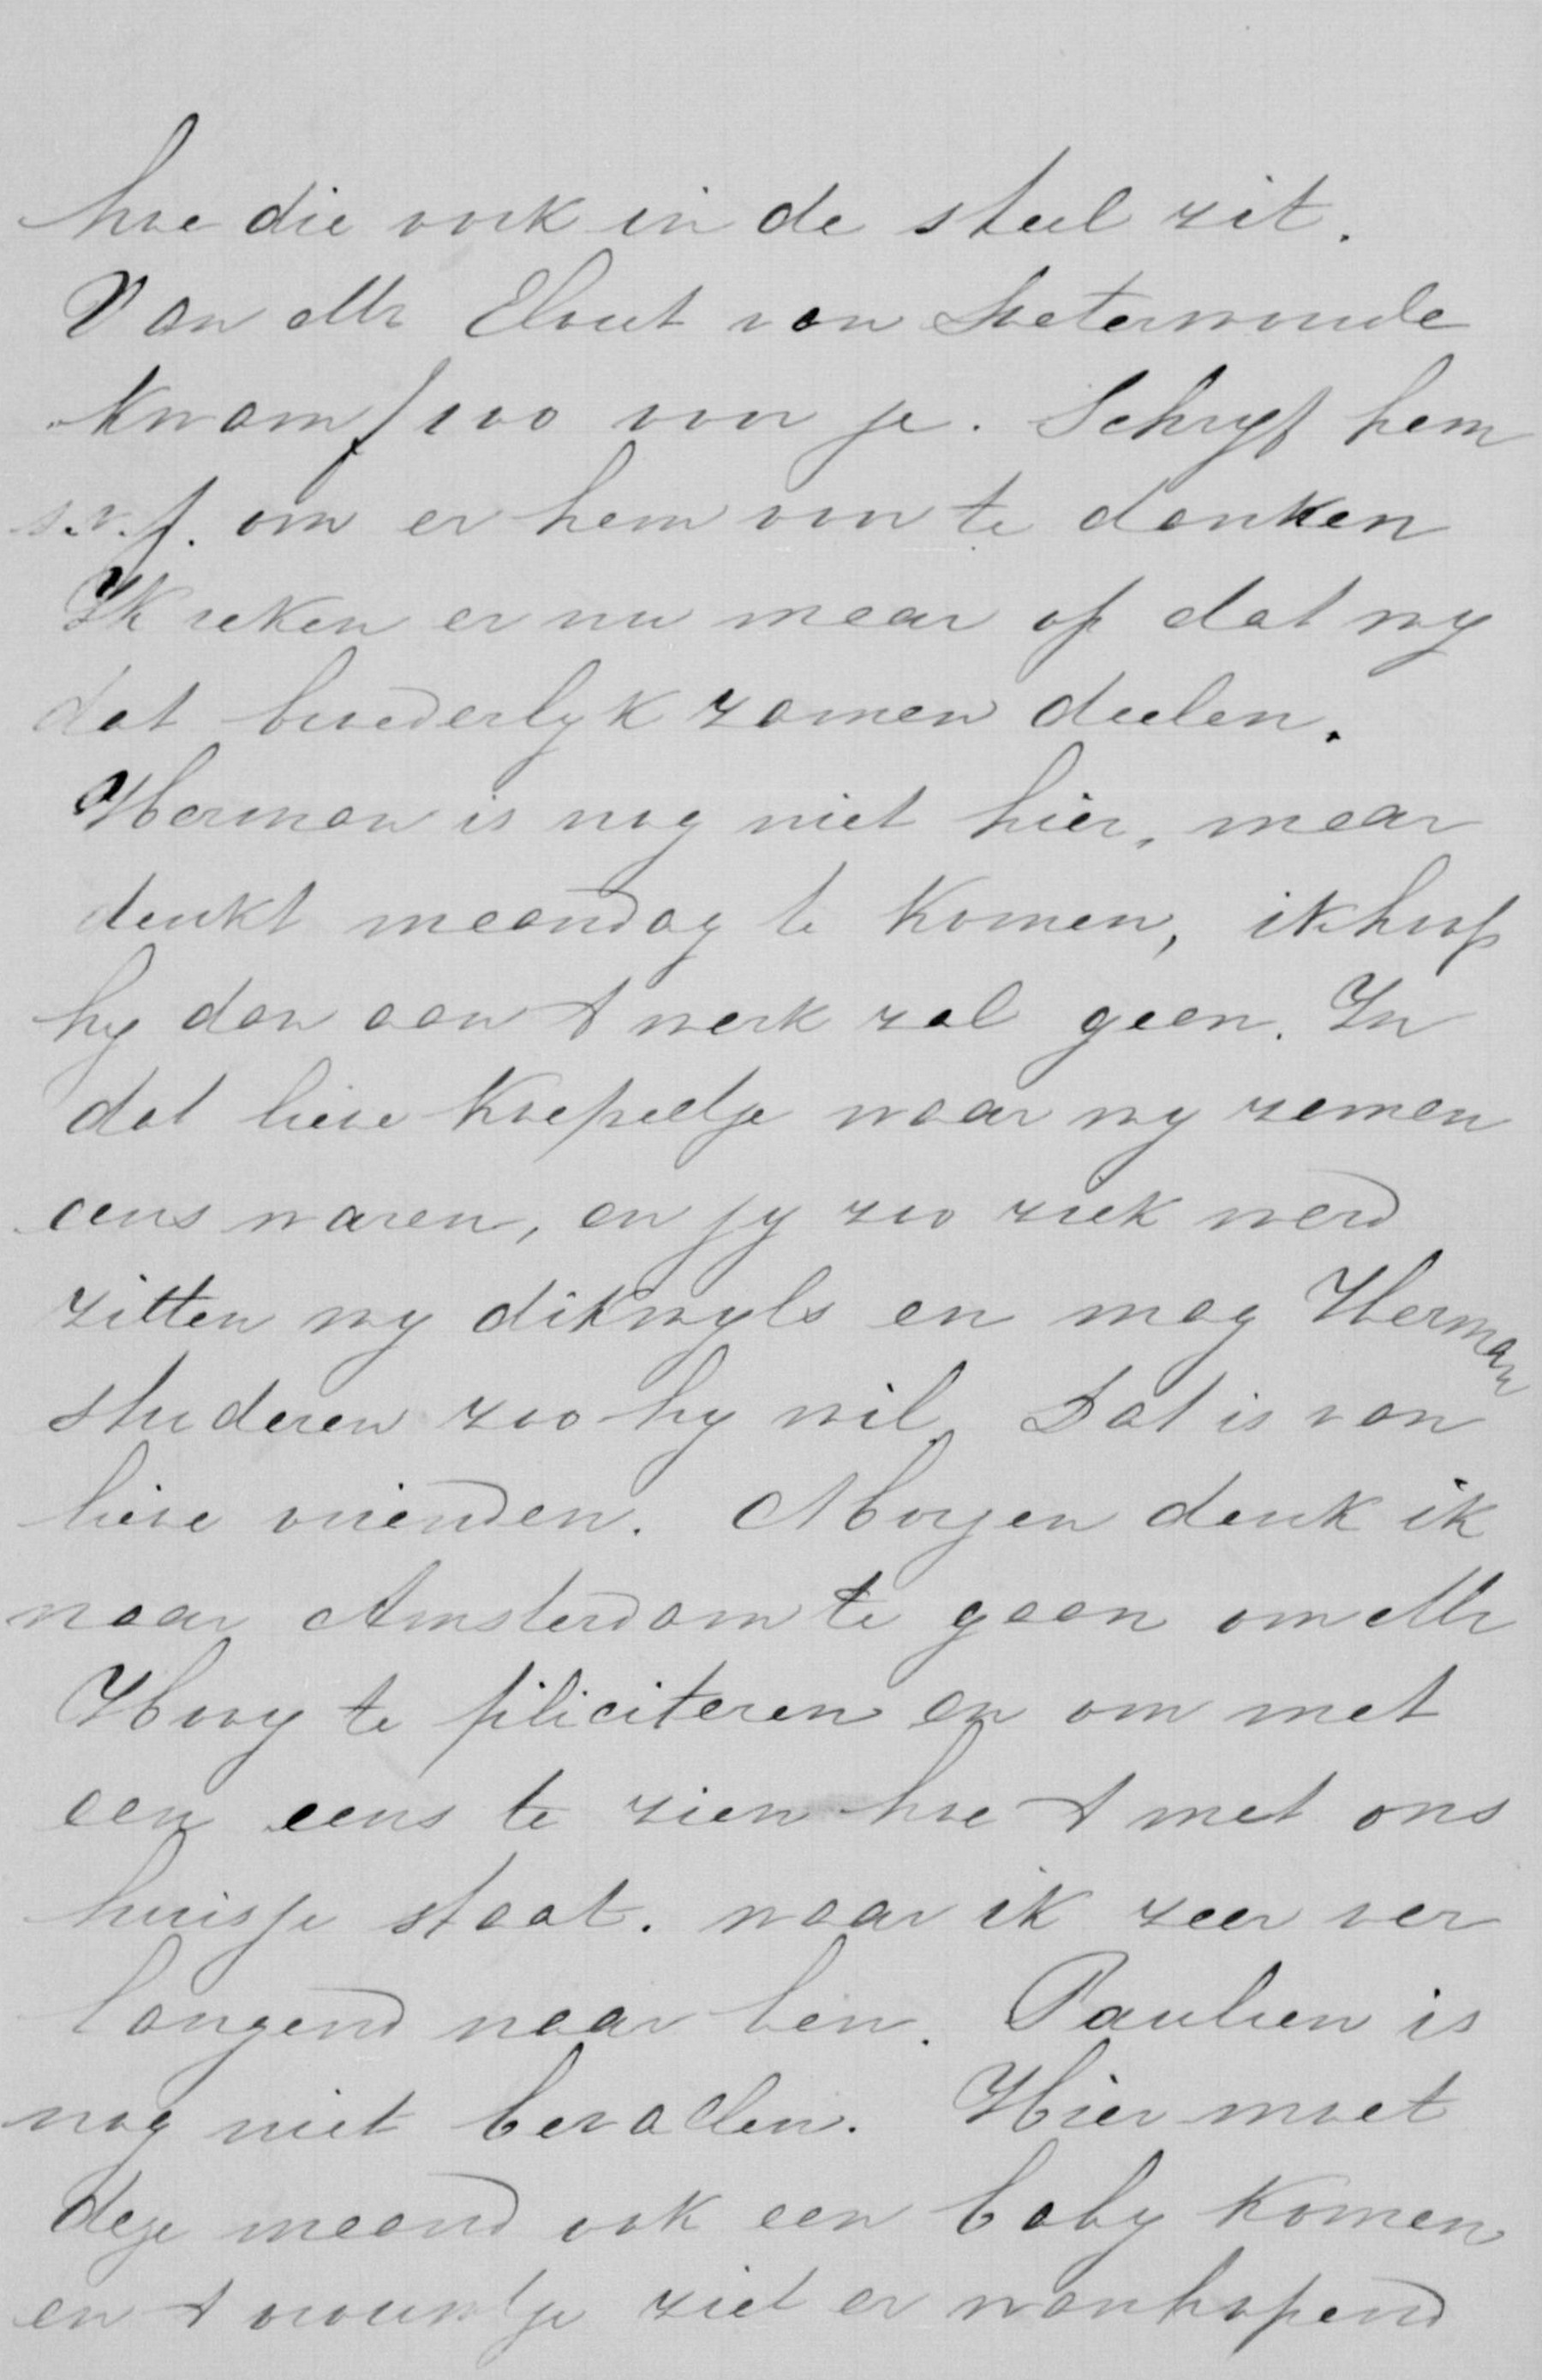 hoe die vork in de steel zit.
Van Mr Elout van Soeterwoude
kwam f 100 voor je. Schryf hem
s.v.p. om er hem voor te danken
Ik reken er nu maar op dat wy
dat broederlyk zamen deelen.
Herman is nog niet hier, maar
denkt maandag te komen, ik hoop
hy dan aan 't werk zal gaan. In
dat lieve koepeltje waar wy zamen
eens waren, en jy zoo ziek werd
zitten wy dikwyls en mag Herman
studeren zoo hy wil. Dat is van
lieve vrienden. Morgen denk ik
naar Amsterdam te gaan om Mr
Hovy te filiciteren en om met
een eens te zien hoe 't met ons
huisje staat. waar ik zeer ver
langend naar ben. Paulien is
nog niet bevallen. Hier moet
deze maand ook een baby komen
en 't vrouwtje ziet er wanhopend